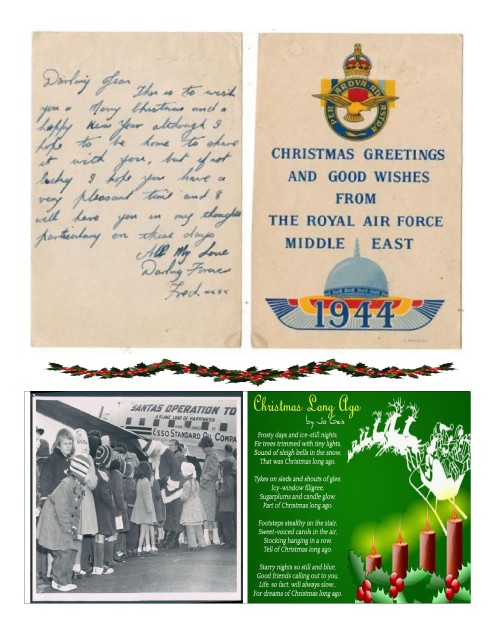 Darling Jean
This is to wish
you a Merry Christmas and a
happy New Year although I
hope to be home to share
it with you, but if not
lucky I hope you have a
very pleasant time and I
will have you in my thoughts
particulary on these days
All My Love
Darling Forever
Fred. xxxx
PER ARDVA AD ASTRA
CHRISTMAS GREETINGS
AND GOOD WISHES
FROM
THE ROYAL AIR FORCE
MIDDLE EAST
1944
SANTAS OPERATION TO
A PLANE LOAD OF HAPPINESS
ESSO STANDARD OIL COMPA
Christmas Long Ago
by Jo Geis
Frosty days and ice-still nights,
Fir trees trimmed with tiny lights,
Sound of sleigh bells in the snow,
That was Christmas long ago.
Tykes on sleds and shouts of glee,
Icy-window filigree,
Sugarplums and candle glow,
Part of Christmas long ago.
Footsteps stealthy on the stair,
Sweet-voiced carols in the air,
Stocking hanging in a row,
Tell of Christmas long ago.
Starry nights so still and blue,
Good friends calling out to you,
Life, so fact, will always slow..
For dreams of Christmas long ago.